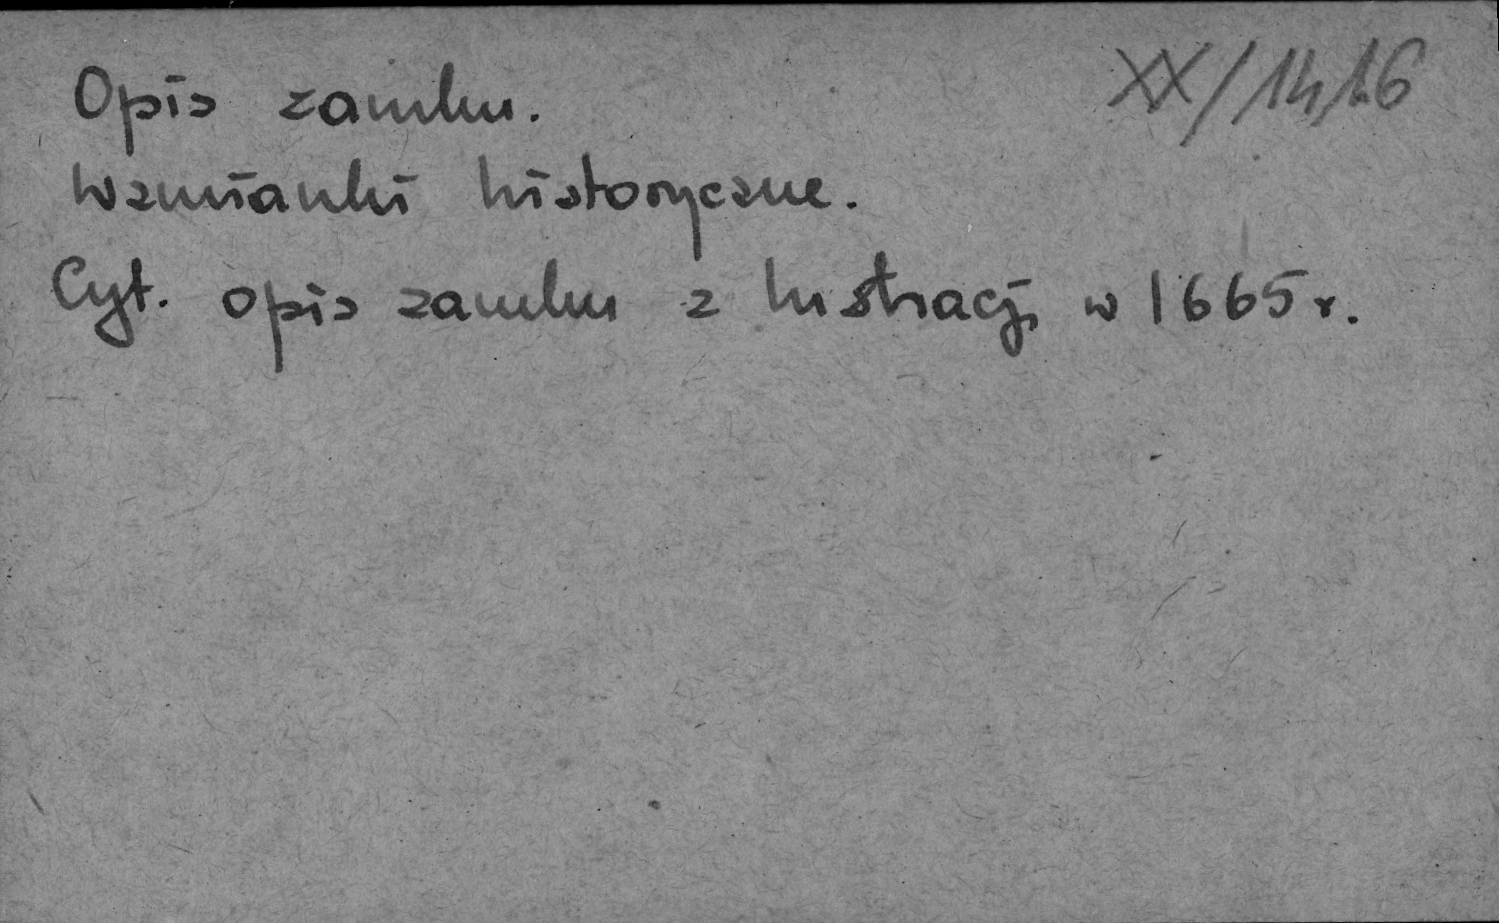 Opis zamku.
XX/14,16
Wzmianki historyczne.
Cyt. opis zamku z lustracji w 1665 r.